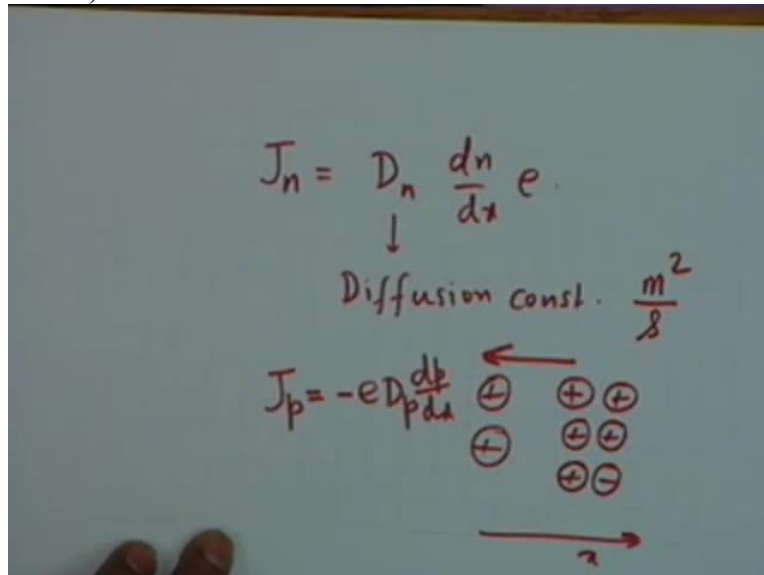 Jn = Dn dn/dx e.
↓
Diffusion const. m²/s
Jp = -e Dp dp/dx ⊕ ⊕ ⊕
⊕ ⊕ ⊕
⊕ ⊖
x